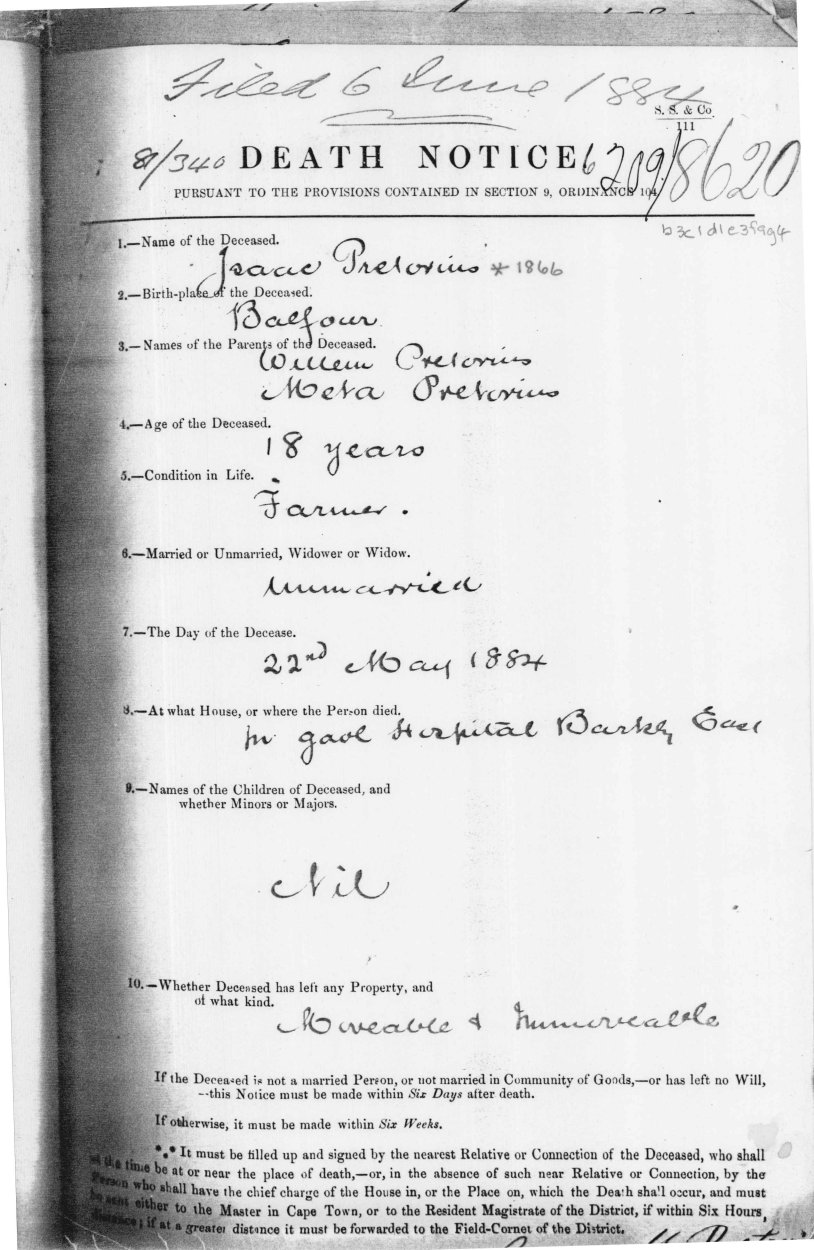 Filed 6 June 1884
S. S. & Co.
111
81/340 DEATH NOTICE 6209/8620
PURSUANT TO THE PROVISIONS CONTAINED IN SECTION 9, ORDINANCE 104.
b3c1d1e3f9g4
1.—Name of the Deceased.
Isaac Pretorius * 1866
2.—Birth-place of the Deceased.
Balfour
3.—Names of the Parents of the Deceased.
Willem Pretorius
Meta Pretorius
4.—Age of the Deceased.
18 years
5.—Condition in Life.
Farmer.
6.—Married or Unmarried, Widower or Widow.
Unmarried
7.—The Day of the Decease.
22nd May 1884
8.—At what House, or where the Person died.
In gaol Hospital Barkly East
9.—Names of the Children of Deceased, and
whether Minors or Majors.
Nil
10.—Whether Deceased has left any Property, and
of what kind.
Moveable & Immoveable
If the Deceased is not a married Person, or not married in Community of Goods,—or has left no Will,
—this Notice must be made within Six Days after death.
If otherwise, it must be made within Six Weeks.
*** It must be filled up and signed by the nearest Relative or Connection of the Deceased, who shall
at the time be at or near the place of death,—or, in the absence of such near Relative or Connection, by the
Person who shall have the chief charge of the House in, or the Place on, which the Death shall occur, and must
be sent either to the Master in Cape Town, or to the Resident Magistrate of the District, if within Six Hours
distance; if at a greater distance it must be forwarded to the Field-Cornet of the District.